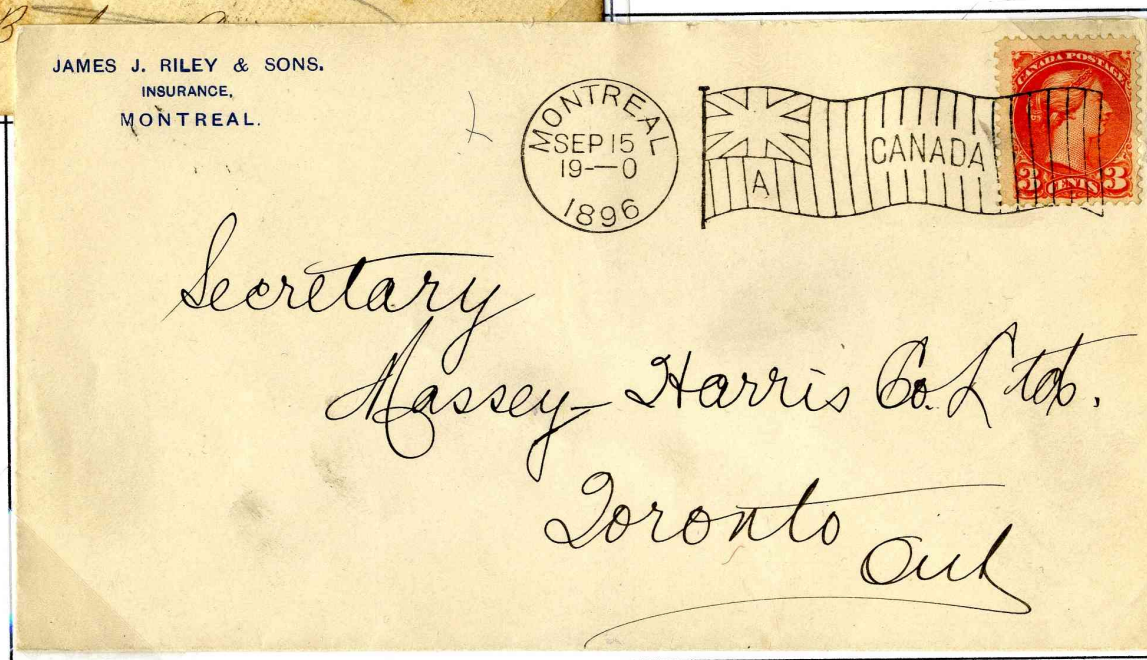 JAMES J. RILEY & SONS.
INSURANCE,
MONTREAL.
MONTREAL
SEP 15
19-—0
1896
CANADA
A
CANADA POSTAGE
3 CENTS 3
Secretary
Massey-Harris Co. Ltd.
Toronto
Ont